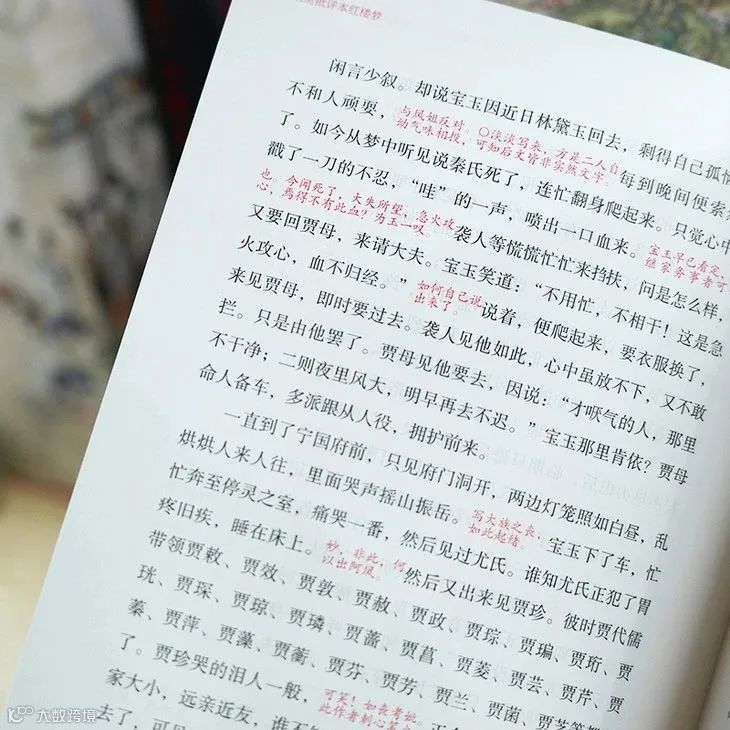 批评本红楼梦
闲言少叙。却说宝玉因近日林黛玉回去，剩得自己孤
不和人顽耍，与凤姐反对 〇淡淡写来，方是二人自
幼气味相投，可知后文皆非实然文字。每到晚间便索
了。如今从梦中听见说秦氏死了，连忙翻身爬起来。只觉心中
戳了一刀的不忍，“哇”的一声，喷出一口血来。宝玉早已看定，
继家务事者可
也。今闻死了，大失所望，急火攻
心，焉得不有此血？为玉一叹。袭人等慌慌忙忙来搀扶，问是怎么样，
又要回贾母，来请大夫。宝玉笑道：“不用忙，不相干！这是急
火攻心，血不归经。”如何自己说
出来了。说着，便爬起来，要衣服换了，
来见贾母，即时要过去。袭人见他如此，心中虽放不下，又不敢
拦。只是由他罢了。贾母见他要去，因说：“才咽气的人，那里
不干净；二则夜里风大，明早再去不迟。”宝玉那里肯依？贾母
命人备车，多派跟从人役，拥护前来。
一直到了宁国府前，只见府门洞开，两边灯笼照如白昼，乱
烘烘人来人往，里面哭声摇山振岳。写大族之丧，
如此起绪。宝玉下了车，忙
忙奔至停灵之室，痛哭一番，然后见过尤氏。谁知尤氏正犯了胃
疼旧疾，睡在床上。妙，非此，何
以出阿凤。然后又出来见贾珍。彼时贾代儒
带领贾敕、贾效、贾敦、贾赦、贾政、贾琮、贾㻞、贾珩、贾
珖、贾琛、贾琼、贾璘、贾蔷、贾菖、贾菱、贾芸、贾芹、贾
蓁、贾萍、贾藻、贾蘅、贾芬、贾芳、贾兰、贾菌、贾芝等
了。贾珍哭的泪人一般，可笑！如丧考妣，
此作者刺心笔
家大小，远亲近友，谁不
去了，可见
大数跨境